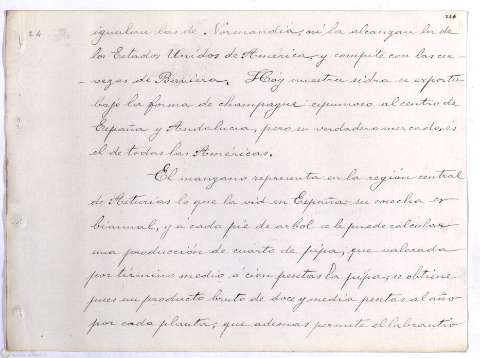 226
24
igualan las de Normandia, ni la alcanzan la de
los Estados Unidos de América, y compite con las cer-
-vezas de Baviera. Hoy nuestra sidra se exporta
bajo la forma de champagne espumoso al centro de
España y Andalucia, pero su verdadero mercado, es
el de todas las Américas.
El manzano representa en la región central
de Asturias lo que la vid en España: su cosecha es
biannual, y a cada pie de arbol se le puede calcular
una producción de cuarto de pipa, que valorada
por término medio á cien pesetas la pipa, se obtiene
pues un producto bruto de doce y media pesetas al año
por cada planta; que ademas permite el labrantio